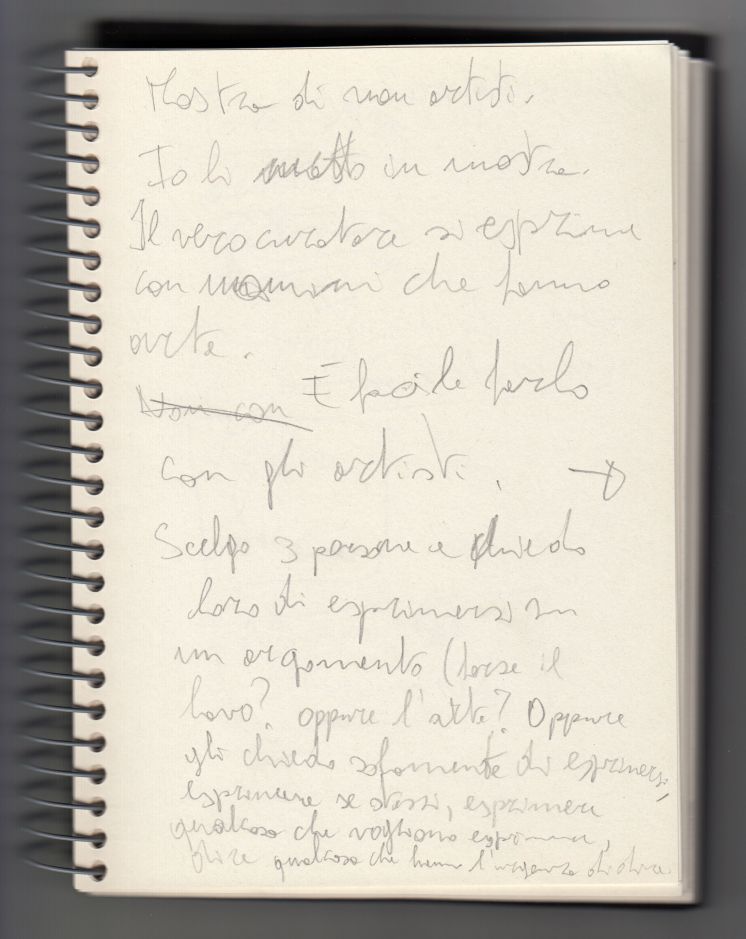 Mostra di non artisti.
Io li metto in mostra.
Il vero curatore si esprime
con uomini che fanno
arte.
Non con È facile farlo
con gli artisti.
Scelgo 3 persone e chiedo
loro di esprimersi su
un argomento (forse il
lavo? oppure l'arte? Oppure
gli chiedo solamente di esprimersi,
esprimere se stessi, esprimere
qualcosa che vogliono esprimere,
dire qualcosa che hanno l'urgenza di dire